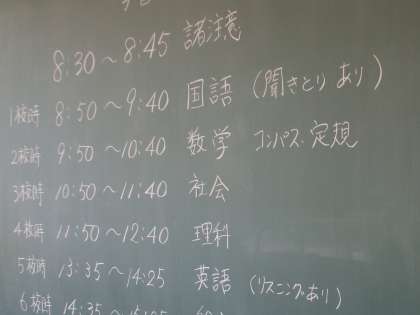 8:30～8:45 諸注意
1校時 8:50～9:40 国語 (聞きとり あり)
2校時 9:50～10:40 数学 コンパス・定規
3校時 10:50～11:40 社会
4校時 11:50～12:40 理科
5校時 13:35～14:25 英語 (リスニングあり)
6校時 14:35～